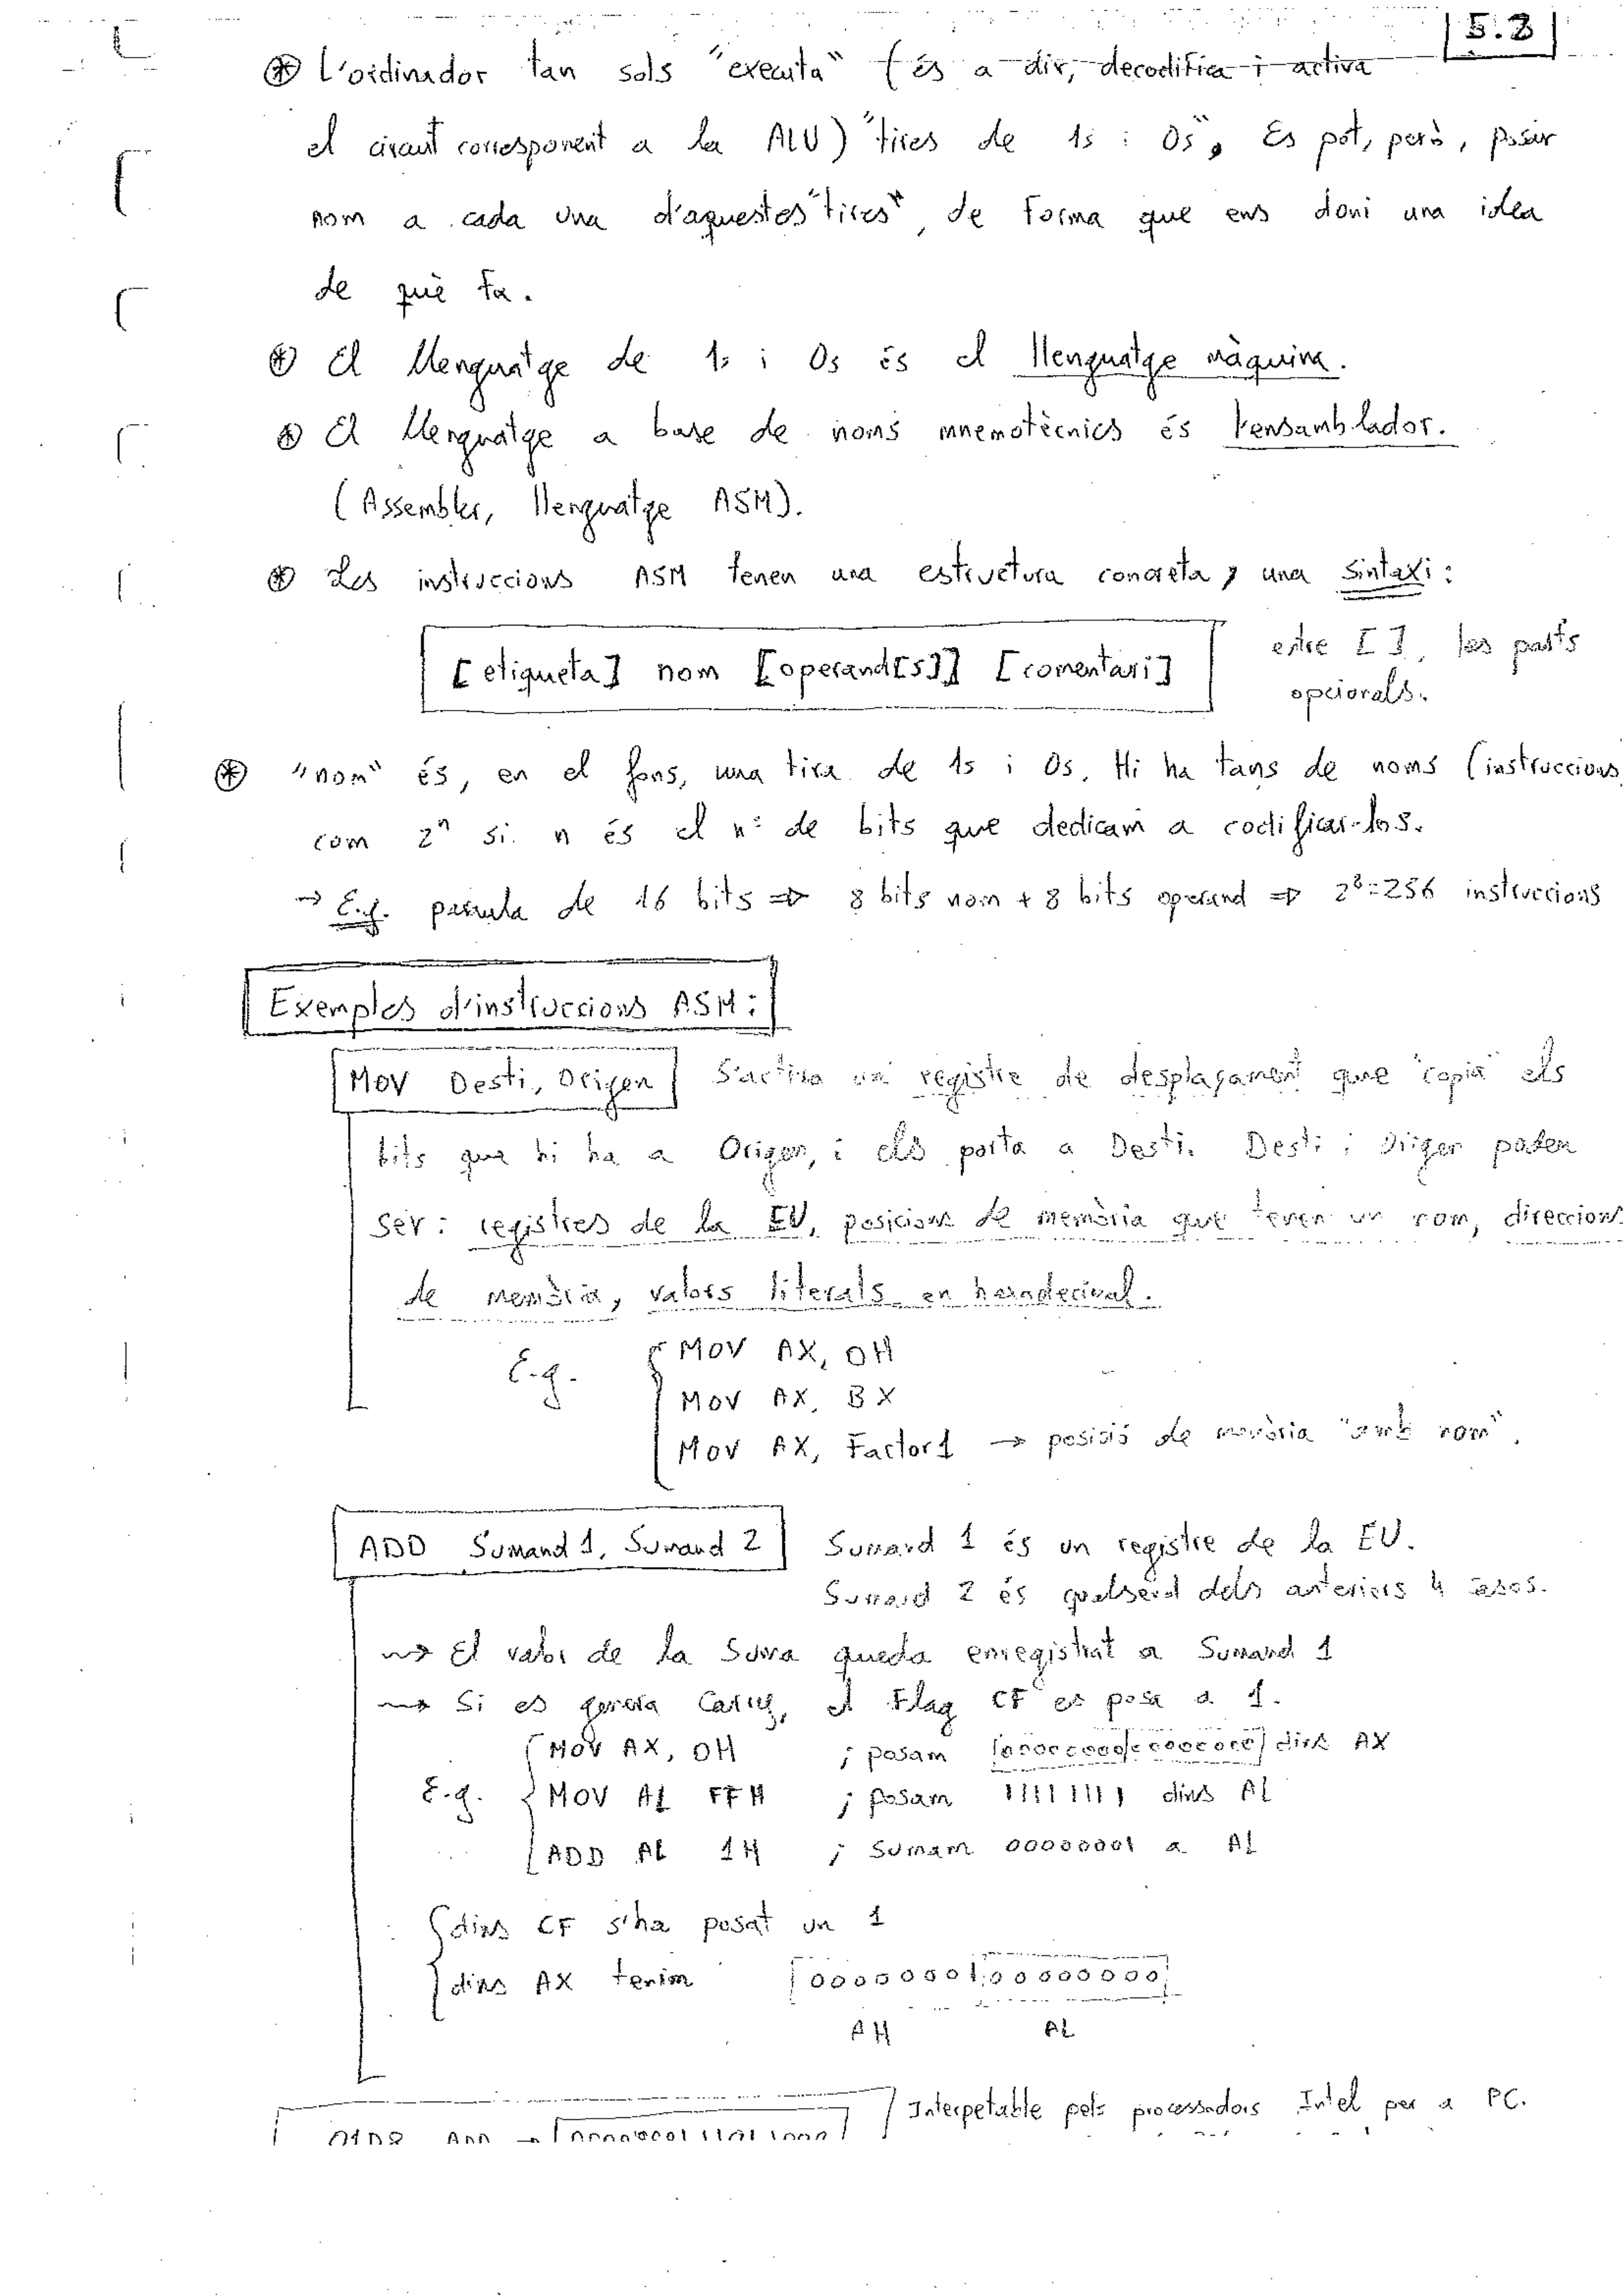 5.3
⊛ L'ordinador tan sols "executa" (és a dir, decodifica i activa
el circuit corresponent a la ALU) "tires de 1s i 0s". Es pot, però, posar
nom a cada una d'aquestes "tires", de forma que ens doni una idea
de què fa.
⊛ El llenguatge de 1s i 0s és el llenguatge màquina.
⊛ El llenguatge a base de noms mnemotècnics és l'ensamblador.
(Assembler, llenguatge ASM).
⊛ Les instruccions ASM tenen una estructura concreta, una sintaxi:
[etiqueta] nom [operand[s]] [comentari]
entre [ ], les parts
opcionals.
⊛ "nom" és, en el fons, una tira de 1s i 0s. Hi ha tans de noms (instruccions
com 2ⁿ si n és el nº de bits que dedicam a codificar-los.
→ E.g. paraula de 16 bits ⇒ 8 bits nom + 8 bits operand ⇒ 2⁸=256 instruccions
Exemples d'instruccions ASM:
MOV Desti, Origen S'activa un registre de desplaçament que "copia" els
bits que hi ha a Origen, i els porta a Desti. Desti i Origen poden
ser: registres de la EU, posicions de memòria que tenen un nom, direccions
de memòria, valors literals en hexadecimal.
E.g. MOV AX, 0H
MOV AX, BX
MOV AX, Factor1 → posició de memòria "amb nom".
ADD Sumand 1, Sumand 2 Sumand 1 és un registre de la EU.
Sumand 2 és qualsevol dels anteriors 4 casos.
⇝ El valor de la suma queda enregistrat a Sumand 1
⇝ Si es genera Carry, el Flag CF es posa a 1.
MOV AX, 0H ; posam 00000000 00000000 dins AX
E.g. MOV AL FFH ; posam 11111111 dins AL
ADD AL 1H ; sumam 00000001 a AL
dins CF s'ha posat un 1
dins AX tenim 00000001 00000000
AH AL
Interpetable pels processadors Intel per a PC.